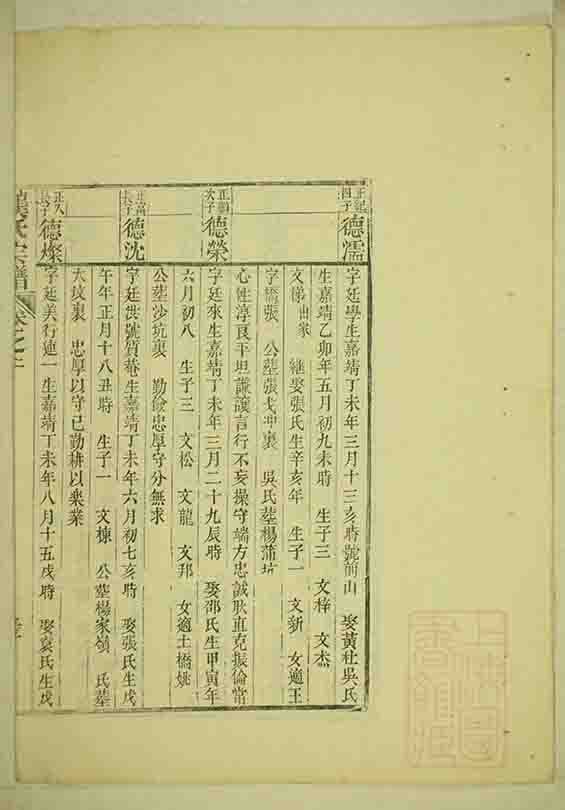 正紀四子 德濡
字廷學生嘉靖丁未年三月十三亥時號前山 娶黃杜吳氏
生嘉靖乙卯年五月初九未時 生子三 文梓 文杰
文悌出家 繼娶張氏生辛亥年 生子一 文新 女適王
字橋張 公塟張戈冲裏 吳氏塟楊蒲坑
次子 德榮
心性淳良平坦謙讓言行不妄操守端方忠誠耿直克振倫常
字廷來生嘉靖丁未年三月二十九辰時 娶邵氏生甲寅年
六月初八 生子三 文松 文龍 文邦 女適土橋姚
公塟沙坑裏 勤儉忠厚守分無求
正富長子 德沈
字廷洪號質菴生嘉靖丁未年六月初七亥時 娶張氏生戊
午年正月十八丑時 生子一 文棟 公塟楊家嶺 氏塟
大坟裏 忠厚以守己勤耕以樂業
正入長子 德燦
字廷美行連一生嘉靖丁未年八月十五戌時 娶袁氏生戊
氏宗譜 卷之二